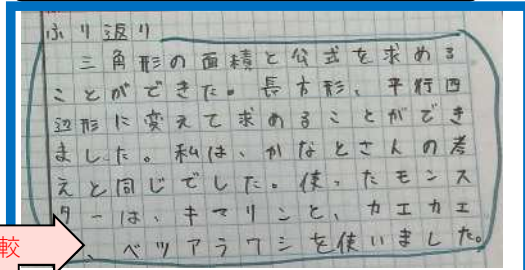 ふり返り
三角形の面積と公式を求める
ことができた。長方形、平行四
辺形に変えて求めることができ
ました。私は、かなとさんの考
えと同じでした。使ったモンス
ターは、キマリンと、カエカエ
、ベツアラワシを使いました。
較